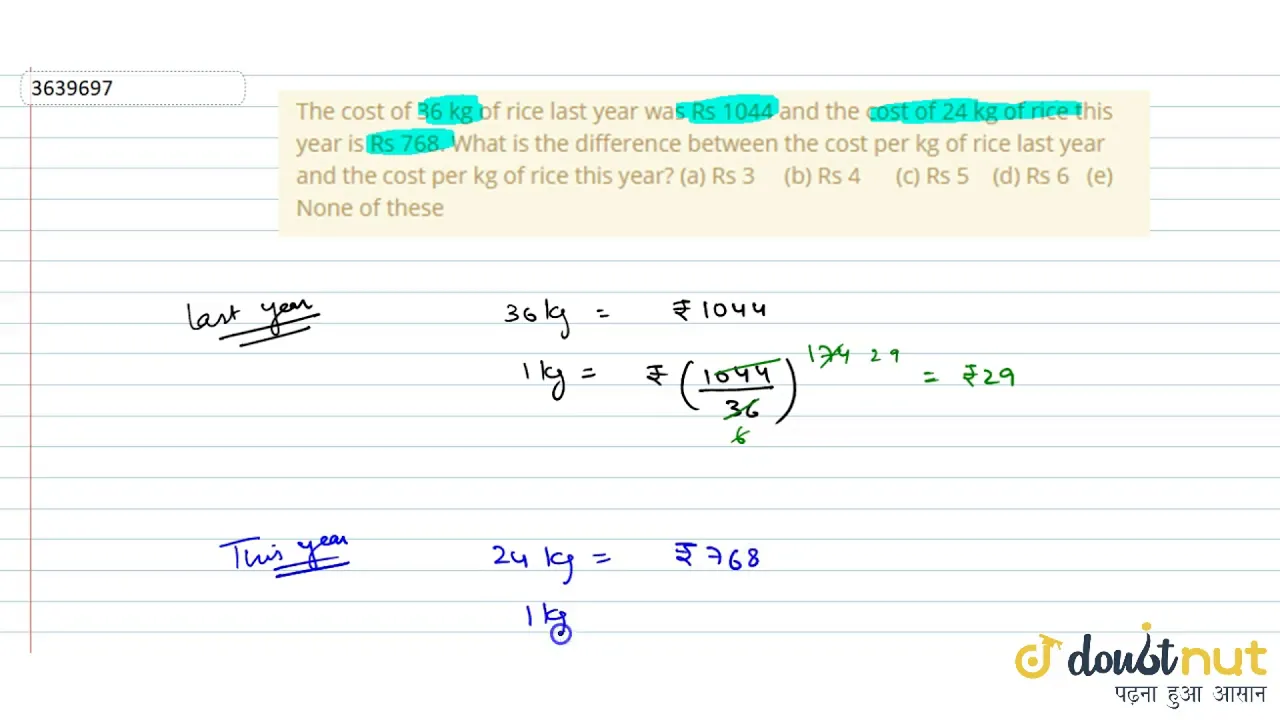 3639697
The cost of 36 kg of rice last year was Rs 1044 and the cost of 24 kg of rice this
year is Rs 768. What is the difference between the cost per kg of rice last year
and the cost per kg of rice this year? (a) Rs 3 (b) Rs 4 (c) Rs 5 (d) Rs 6 (e)
None of these
Last year 36 kg = ₹ 1044
1 kg = ₹ (1044/36) 174 29 = ₹29
6
This year 24 kg = ₹ 768
1 kg
doubtnut
पढ़ना हुआ आसान